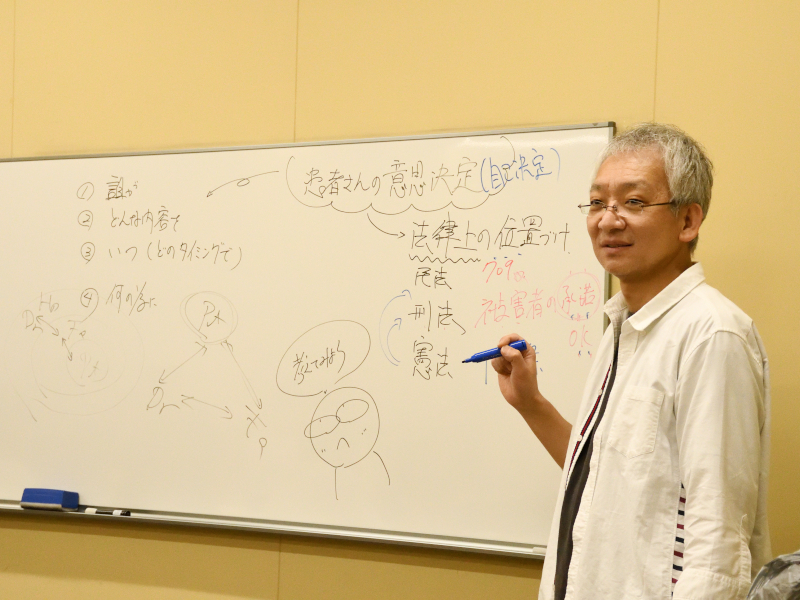 ① 誰が
② どんな内容で
③ いつ (どのタイミングで)
④ 何の為に
患者さんの意思決定 (自己決定)
法律上の位置づけ
民法 709
刑法 被害者の承諾
OK
憲法
Pt
Dr
考えてみよう
Dr